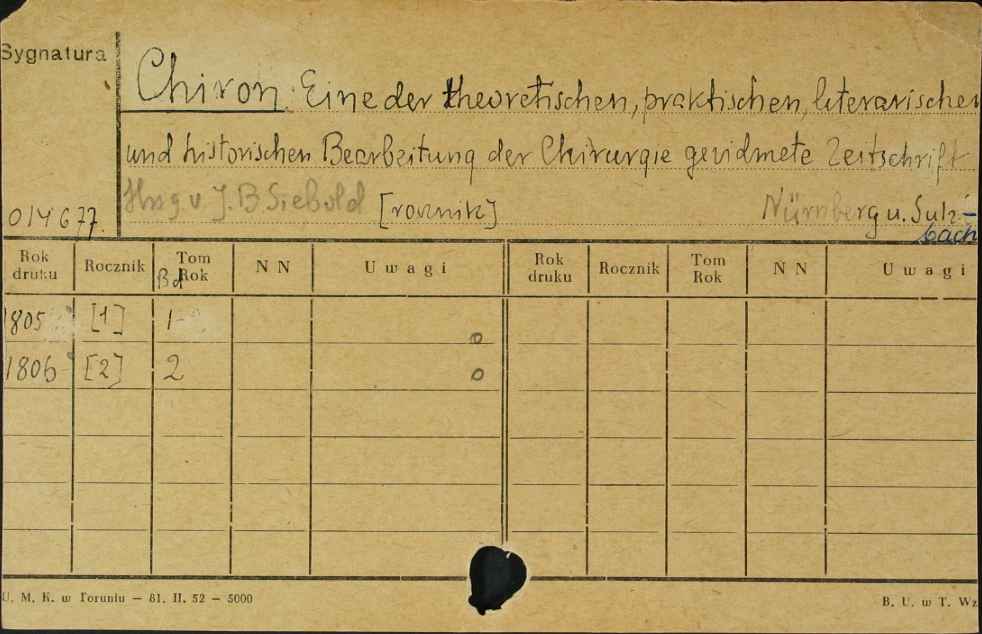 Sygnatura
Chiron. Eine der theoretischen, praktischen, literarischen
und historischen Bearbeitung der Chirurgie gewidmete Zeitschrift
Hrsg v. J. B Siebold [rocznik] Nürnberg u. Sulz-
bach
014677.
Rok druku Rocznik Tom Rok Bd NN Uwagi Rok druku Rocznik Tom Rok NN Uwagi
1805 [1] 1 o
1806 [2] 2 o
U. M. K. w Toruniu — 81. II. 52 — 5000 B. U. w T. Wz